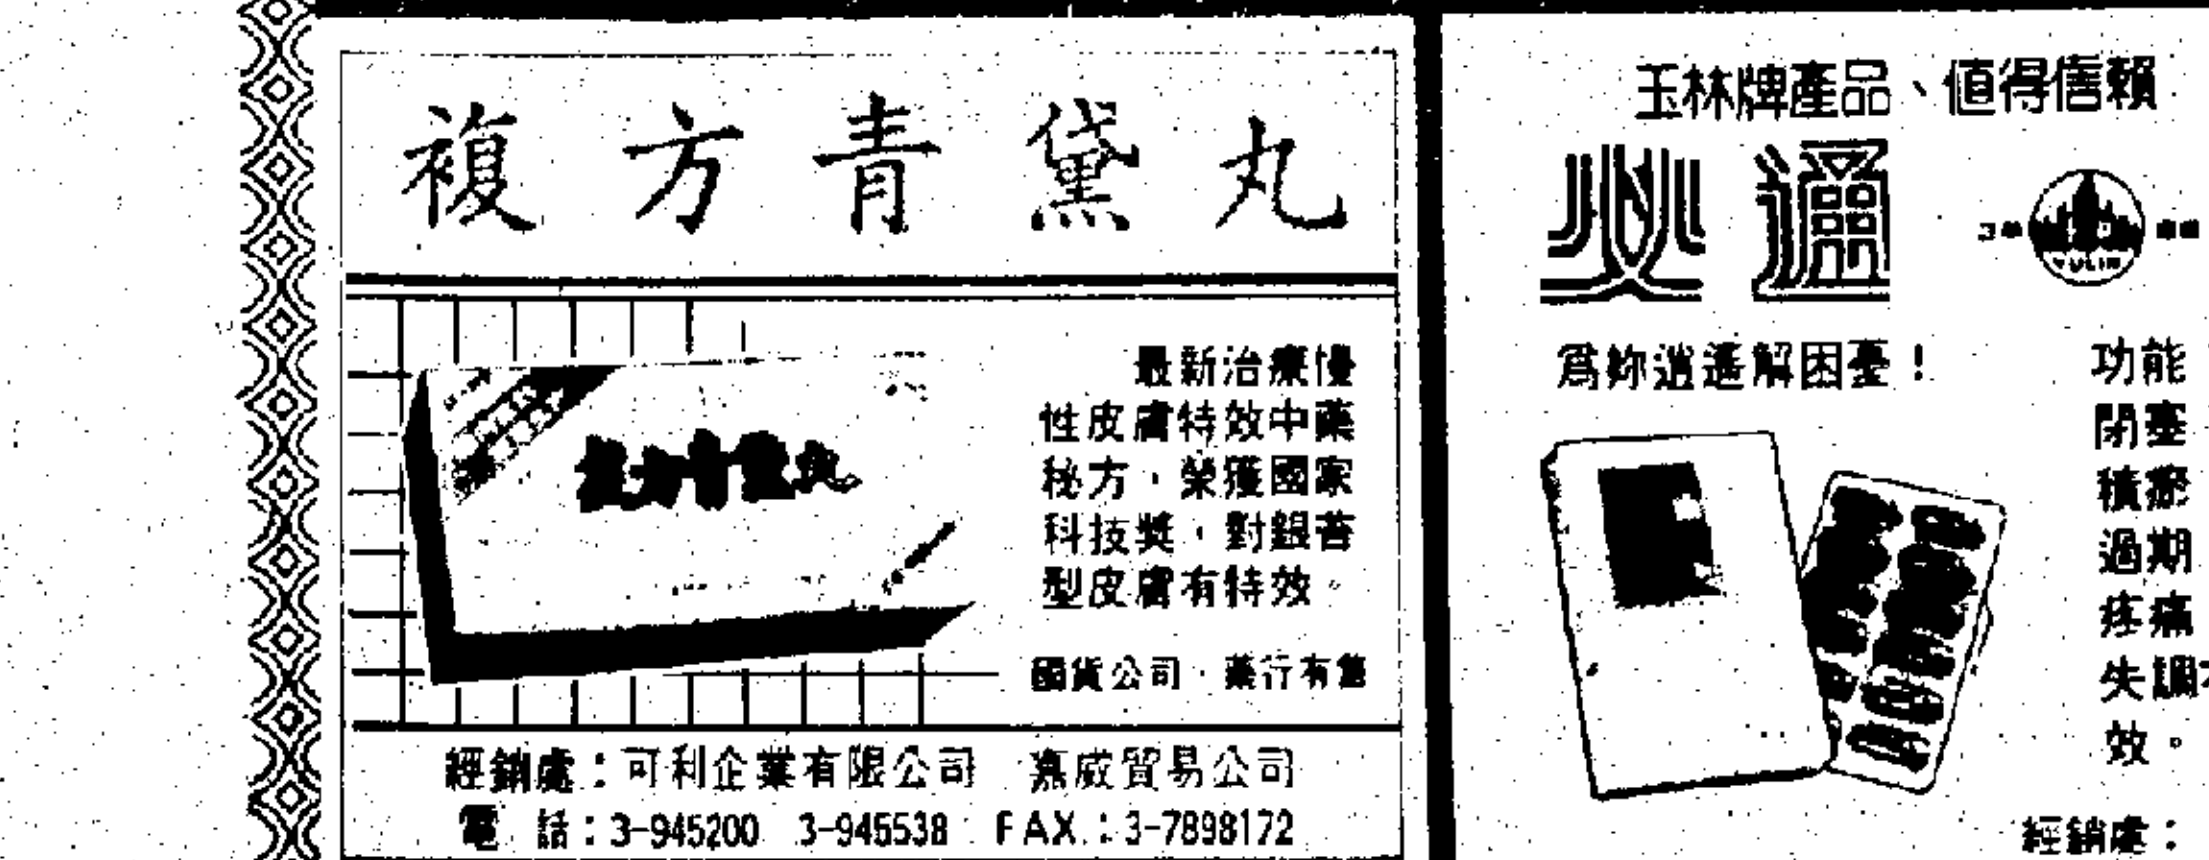 複方青黛丸
複方青黛丸
最新治療慢
性皮膚特效中藥
秘方，榮獲國家
科技獎，對銀苔
型皮膚有特效。
國貨公司．藥行有售
經銷處：可利企業有限公司　嘉威貿易公司
電　話：3-945200　3-945538　FAX.：3-7898172
玉林牌產品、值得信賴
必通
YULIN
爲妳逍遙解困憂！
功能
閉塞
積瘀
過期
疼痛
失調
效。
經銷處：